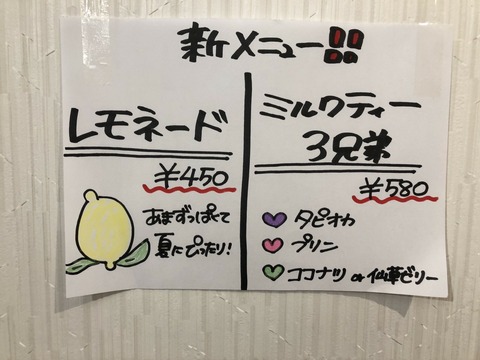 新メニュー!!
レモネード
¥450
あまずっぱくて
夏にぴったり!
ミルクティー
3兄弟
¥580
タピオカ
プリン
ココナツ or 仙草ゼリー